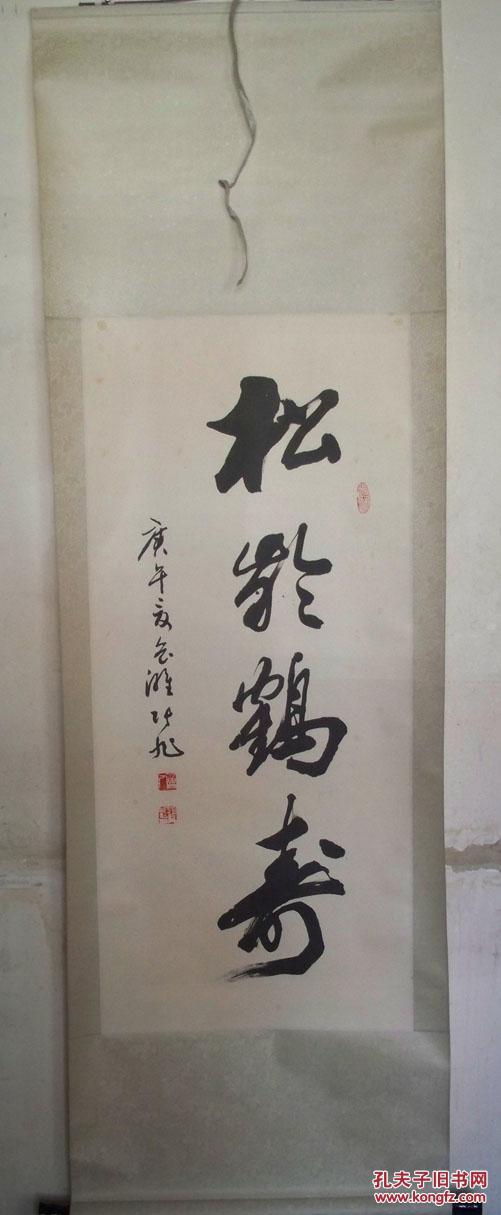 松龄鹤寿
庚午夏
孔夫子旧书网
www.kongfz.com